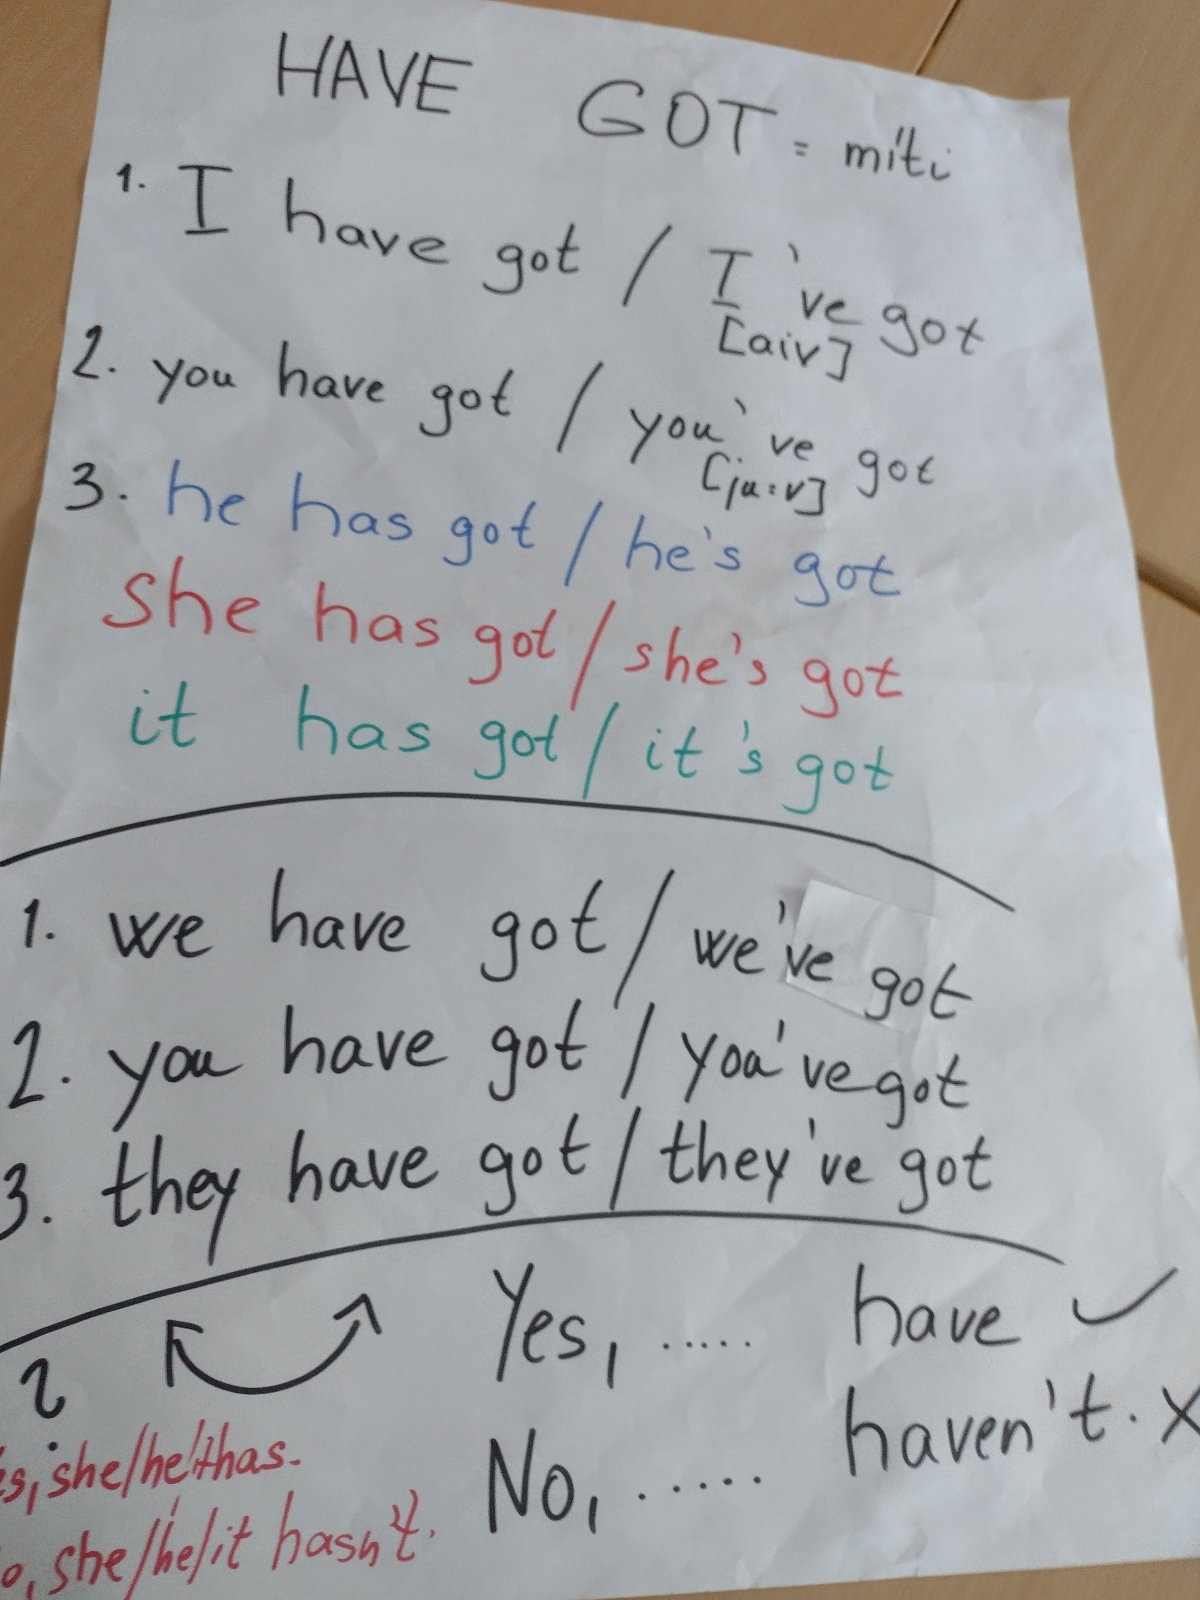 HAVE GOT = míti
1. I have got / I've got
[aiv]
2. you have got / you've got
[ju:v]
3. he has got / he's got
she has got / she's got
it has got / it's got
1. we have got / we've got
2. you have got / you've got
3. they have got / they've got
? Yes, ..... have ✓
No, ..... haven't. X
es, she/he/it has.
o, she/he/it hasn't.